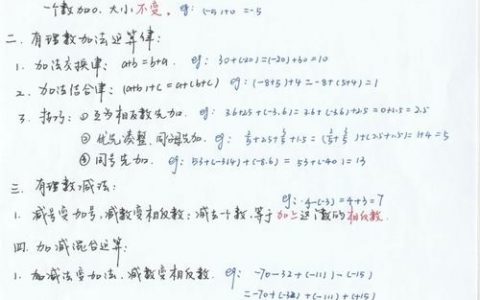 一个数加0,大小不变。 eg: (-5)+0=-5
二. 有理数加法运算律:
1. 加法交换律: a+b=b+a. eg: 30+(-20)=(-20)+30=10
2. 加法结合律: (a+b)+c=a+(b+c) eg: (-8+5)+4=-8+(5+4)=1
3. 技巧: ①互为相反数先加. eg: 3.6+2.5+(-3.6)=3.6+(-3.6)+2.5=0+2.5=2.5
②优先凑整,同分母先加. +2.5+ +1.5= +(2.5+1.5)=1+4=5
④同号先加. eg: 53+(-31.4)+(-8.6)=53+(-40)=13
三. 有理数减法:
eg: 4-(-3)=4+3=7
1. 减号变加号,减数变相反数:减去一个数,等于加上这个数的相反数.
四. 加减混合运算:
1. 减法变加法,减数变相反数. eg: -70-32+(-11)-(-15)
=-70+(-32)+(-11)+(+15)